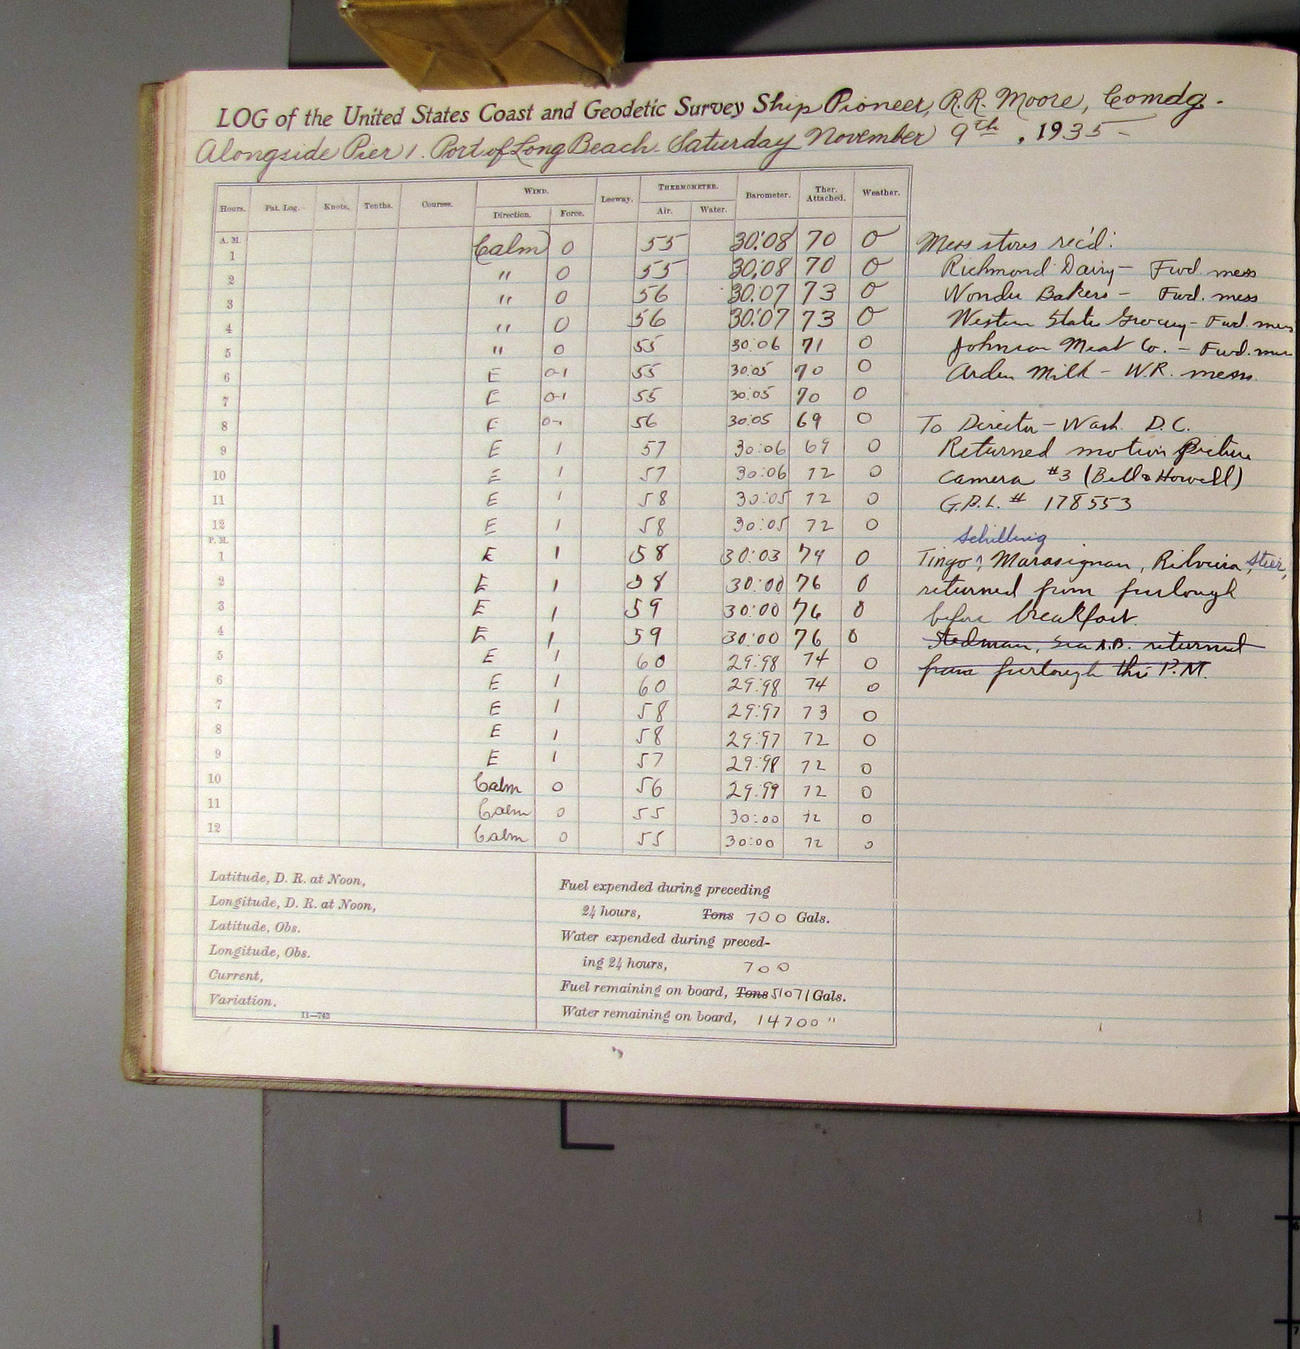 LOG of the United States Coast and Geodetic Survey Ship Pioneer, R.R. Moore, Comdg.
Alongside Pier 1. Port of Long Beach. Saturday November 9th, 1935
Hours. Pat. Log. Knots. Tenths. Courses. WIND. Direction. Force. Leeway. THERMOMETER. Air. Water. Barometer. Ther. Attached. Weather.
A. M.
1 Calm 0 55 30:08 70 O
2 " 0 55 30:08 70 O
3 " 0 56 30:07 73 O
4 " 0 56 30:07 73 O
5 " 0 55 30:06 71 O
6 E 0-1 55 30:05 70 O
7 E 0-1 55 30:05 70 O
8 E 0-1 56 30:05 69 O
9 E 1 57 30:06 69 O
10 E 1 57 30:06 72 O
11 E 1 58 30:05 72 O
12 E 1 58 30:05 72 O
P. M.
1 E 1 58 30:03 74 O
2 E 1 58 30:00 76 O
3 E 1 59 30:00 76 O
4 E 1 59 30:00 76 O
5 E 1 60 29:98 74 O
6 E 1 60 29:98 74 O
7 E 1 58 29:97 73 O
8 E 1 58 29:97 72 O
9 E 1 57 29:98 72 O
10 Calm 0 56 29:99 72 O
11 Calm 0 55 30:00 72 O
12 Calm 0 55 30:00 72 O
Mess stores rec'd:
Richmond Dairy - Fwd. mess
Wonder Bakers - Fwd. mess
Western States Grocery - Fwd. mess
Johnson Meat Co. - Fwd. mess
Arden Milk - W.R. mess.
To Director - Wash. D.C.
Returned motion picture
camera #3 (Bell & Howell)
G.P.L. # 178553
Schilling
Tingo ^ Marasignan, Ribueria, Steir,
returned from furlough
before breakfast.
Stedman, Sea A.B. returned
from furlough this P.M.
Latitude, D. R. at Noon,
Longitude, D. R. at Noon,
Latitude, Obs.
Longitude, Obs.
Current,
Variation.
11—743
Fuel expended during preceding
24 hours, Tons 700 Gals.
Water expended during preced-
ing 24 hours, 700
Fuel remaining on board, Tons 51071 Gals.
Water remaining on board, 14700 "